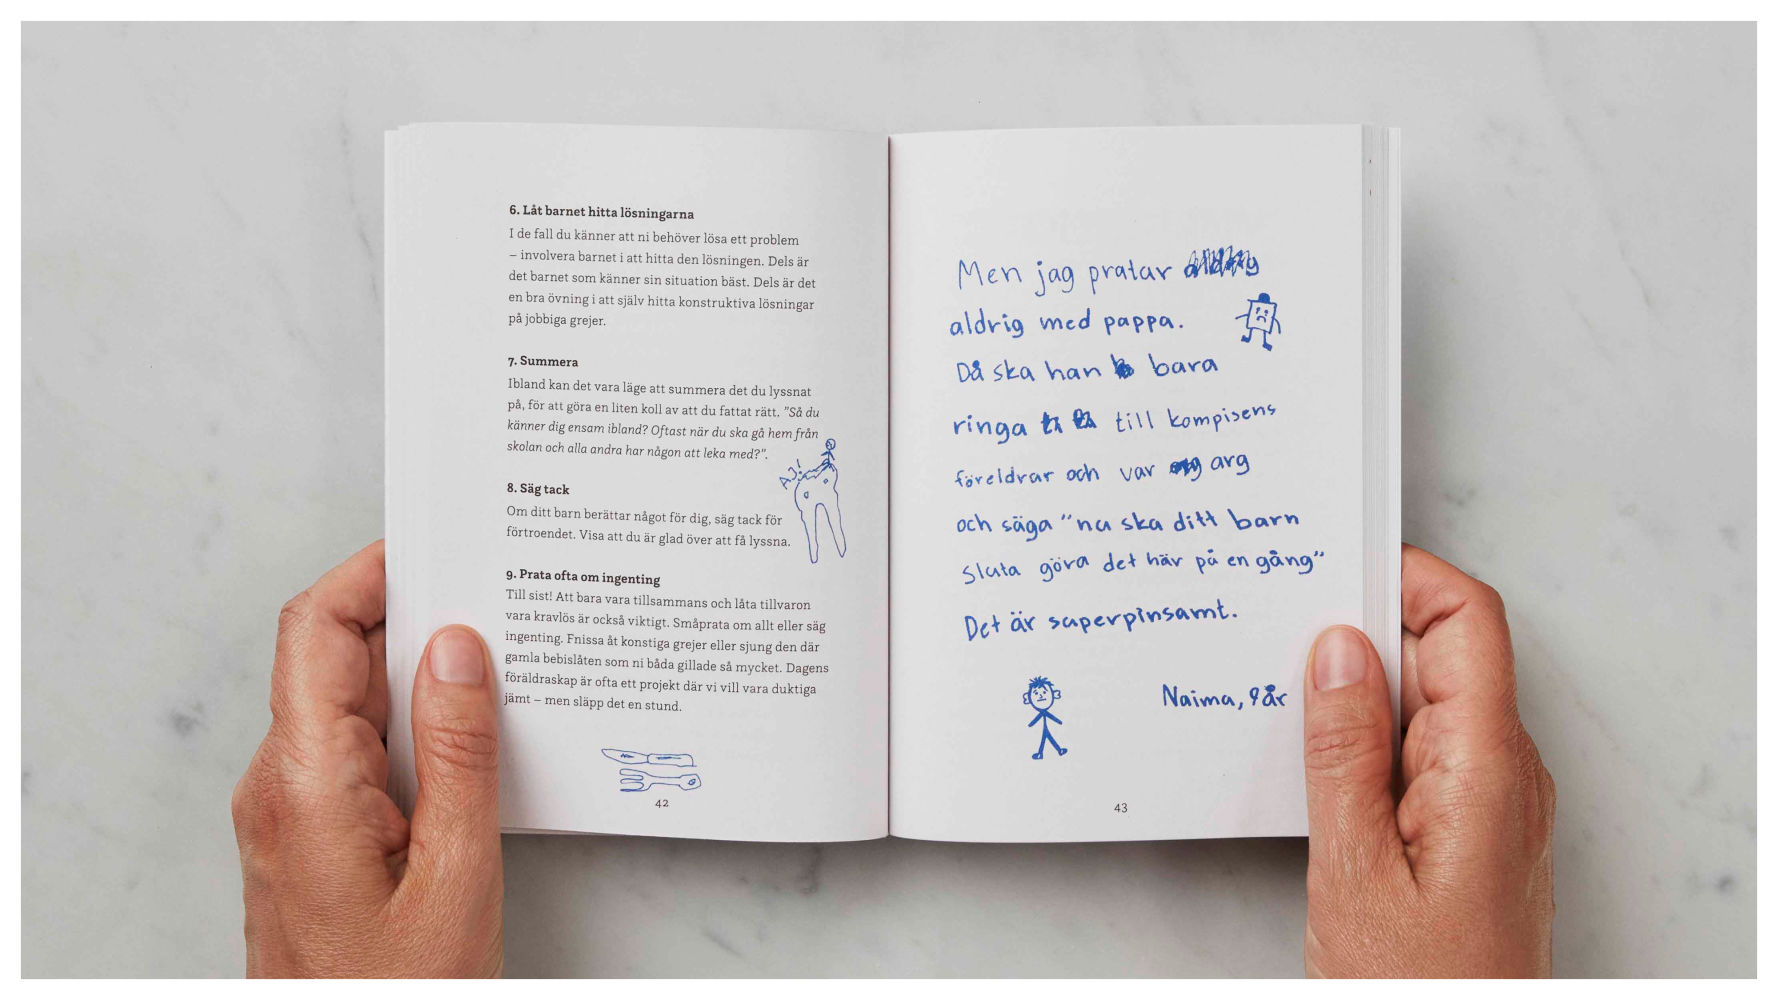 6. Låt barnet hitta lösningarna
I de fall du känner att ni behöver lösa ett problem
– involvera barnet i att hitta den lösningen. Dels är
det barnet som känner sin situation bäst. Dels är det
en bra övning i att själv hitta konstruktiva lösningar
på jobbiga grejer.
7. Summera
Ibland kan det vara läge att summera det du lyssnat
på, för att göra en liten koll av att du fattat rätt. ”Så du
känner dig ensam ibland? Oftast när du ska gå hem från
skolan och alla andra har någon att leka med?”.
AJ!
8. Säg tack
Om ditt barn berättar något för dig, säg tack för
förtroendet. Visa att du är glad över att få lyssna.
9. Prata ofta om ingenting
Till sist! Att bara vara tillsammans och låta tillvaron
vara kravlös är också viktigt. Småprata om allt eller säg
ingenting. Fnissa åt konstiga grejer eller sjung den där
gamla bebislåten som ni båda gillade så mycket. Dagens
föräldraskap är ofta ett projekt där vi vill vara duktiga
jämt – men släpp det en stund.
42
Men jag pratar aldrig
aldrig med pappa.
Då ska han bara
ringa till kompisens
föreldrar och var arg
och säga ”nu ska ditt barn
sluta göra det här på en gång”
Det är superpinsamt.
Naima, 9 år
43